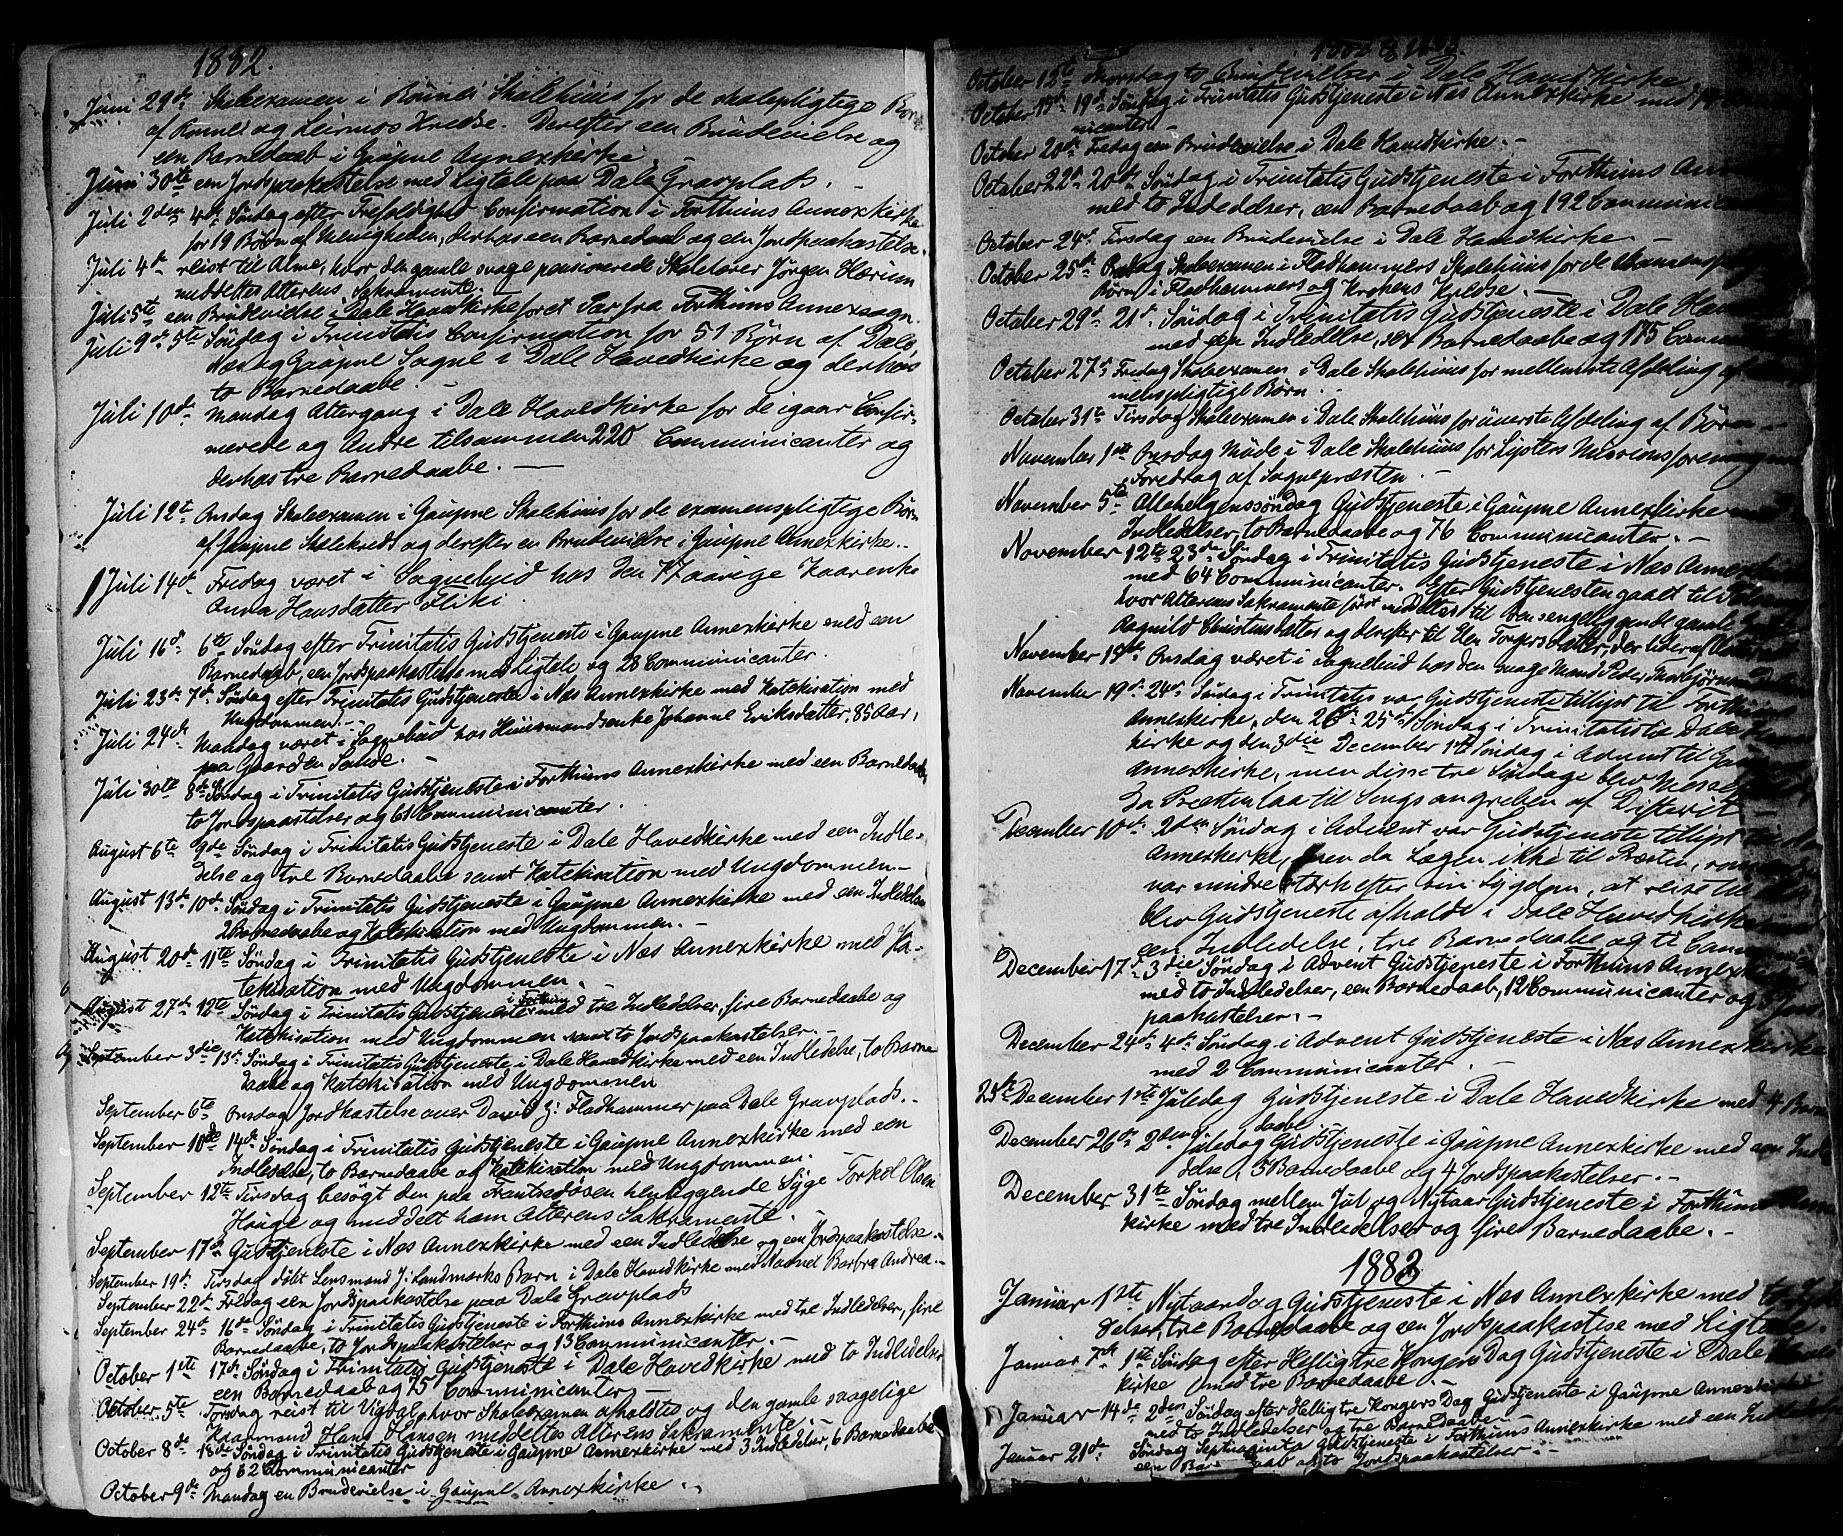 1882.
Juni 29de Skoleexamen i Rønnei Skolehuus for de skolepligtige Børn
af Rønnei og Leirmos Kredse. Derefter een Brudevielse og
een Barnedaab i Gaupne Annexkirke.
Juni 30te een Jordspaakastelse med Ligtale paa Dale Gravplads. –
Juli 2den 4de Søndag efter Trefoldighed Confirmation i Forthuns Annexkirke
for 19 Børn af Menigheden, derhos een Barnedaab og een Jordpaakastelse.
Juli 4de reist til Alme, hvor den gamle svage pensionerede Skolelærer Jørgen
meddeltes Alterens Sakramente.
Juli 5te een Brudevielse i Dale Hovedkirke for et Par fra Forthuns Annexsogn.
Juli 9de 5te Søndag i Trinitatis Confirmation for 51 Børn af Dale,
Næs og Gaupne Sogne i Dale Hovedkirke og derhos
to Barnedaabe.
Juli 10de Mandag Altergang i Dale Hovedkirke for de igaar Confir-
merede og Andre tilsammen 220 Communicanter og
derhos tre Barnedaabe. –
Juli 12te Onsdag Skoleexamen i Gaupne Skolehuus for de examenspligtige Børn
af Gaupne Skolekreds og derefter en Brudevielse i Gaupne Annexkirke. –
Juli 14de Fredag været i Sognebud hos den aarige
Anna Hansdatter
Juli 16de 6te Søndag efter Trinitatis Gudstjeneste i Gaupne Annexkirke med een
Barnedaab, een Jordspaakastelse med Ligtale og 28 Communicanter.
Juli 23de 7de Søndag efter Trinitatis Gudstjeneste i Næs Annexkirke med Katekisation med
Ungdommen. –
Juli 24de Mandag været i Sognebud hos Huusmandsenke Johanne Eriksdatter, 85 Aar,
paa Gaarden
Juli 30te 8de Søndag i Trinitatis Gudstjeneste i Forthuns Annexkirke med een Barnedaab,
to Jordspaastelser og 61 Communicanter.
August 6te 9de Søndag i Trinitatis Gudstjeneste i Dale Hovedkirke med een Indle-
delse og tre Barnedaabe samt Katekisation med Ungdommen –
August 13de 10de Søndag i Trinitatis Gudstjeneste i Gaupne Annexkirke med een Indledelse
2 Barnedaabe og Katekisation med Ungdommen. –
August 20de 11te Søndag i Trinitatis Gudstjeneste i Næs Annexkirke med Ka-
tekisation med Ungdommen. –
August 27de 12te Søndag i Trinitatis Gudstjeneste i Forthun med tre Indledelser, fire Barnedaabe og
Katekisation med Ungdommen samt to Jordspaakastelser. –
September 3die 13de Søndag i Trinitatis Gudstjeneste i Dale Hovedkirke med een Indledelse, to Barne
daabe og Katekisation med Ungdommen
September 6te Onsdag Jordkastelse over David G. Fladhammer paa Dale Gravplads. –
September 10de 14de Søndag i Trinitatis Gudstjeneste i Gaupne Annexkirke med een
Indledelse, to Barnedaabe og Katekisation med Ungdommen.
September 12te Tirsdag besøgt den paa henliggende Syge Torkel Olsen
Hauge og meddelt ham Alterens Sakramente.
September 17de Gudstjeneste i Næs Annexkirke med een Indledelse og een Jordspaakastelse. –
September 19de Tirsdag døbt Lensmand J. Landmarks Barn i Dale Hovedkirke med Navnet Barbra Andrea. –
September 22de Fredag een Jordspaakastelse paa Dale Gravplads
September 24de 16de Søndag i Trinitatis Gudstjeneste i Forthuns Annexkirke med tre Indledelser, fire
Barnedaabe, to Jordspaakastelser og 13 Communicanter. –
October 1ste 17de Søndag i Trinitatis Gudstjeneste i Dale Hovedkirke med to Indledelser
een Barnedaab og 75 Communicanter –
October 5te Torsdag reist til Vigdal, hvor Skoleexamen afholdtes og den gamle svagelige
Kaarmand Hans Hansen meddeltes Alterens Sakramente. –
October 8de 18de Søndag i Trinitatis Gudstjeneste i Gaupne Annexkirke med 3 Indledelser, 6 Barnedaabe
og 62 Communicanter
October 9de Mandag en Brudevielse i Gaupne Annexkirke. –
October 12te Thorsdag to Brudevielser i Dale Hovedkirke
October 15de 19de Søndag i Trinitatis Gudstjeneste i Næs Annexkirke med
nicanter
October 20de Fredag een Brudevielse i Dale Hovedkirke. –
October 22de 20de Søndag i Trinitatis Gudstjeneste i Forthuns
med to Indledelser, een Barnedaab og 192 Communican
October 24de Tirsdag een Brudevielse i Dale Hovedkirke. –
October 25de Onsdag Skoleexamen i Fladhammers Skolehuus for de
Børn i Fladhammers og Krokens Kredse. –
October 29de 21de Søndag i Trinitatis Gudstjeneste i Dale
med een Indledelse, sex Barnedaabe og 175
October 27de Fredag Skoleexamen i Dale Skolehuus for mellemste Afdeling af
menspligtige Børn.
October 31te Tirsdag Skoleexamen i Dale Skolehuus for øverste Afdeling af Børn –
November 1ste Onsdag Møde i Dale Skolehuus for Lysters Missionsforening med
Foredrag af Sognepræsten. –
November 5te Allehelgenssøndag Gudstjeneste i Gaupne Annexkirke med
Indledelser, to Barnedaabe og 76 Communicanter. –
November 12te 23de Søndag i Trinitatis Gudstjeneste i Næs
med 64 Communicanter. Efter Gudstjenesten gaaet til
hvor Alterens Sakramente først meddeltes til den sengeliggende gamle
Ragnild Christensdatter og derefter til Elen Torgersdatter, der lider af
November 15de Onsdag været i Sognebud hos den svage Mand Peder
November 19de 24de Søndag i Trinitatis var Gudstjeneste tillyst til Forthuns
Annexkirke, den 26de 25de Søndag i Trinitatis til Dale
kirke og den 3die December 1ste Søndag i Advent til
Annexkirke, men disse tre Søndage blev Messefald
da Præsten laa til Sengs angreben af Difterit –
December 10de 2den Søndag i Advent var Gudstjeneste tillyst til
Annexkirke, men da Lægen ikke til Præsten, som endnu
var mindre stærk efter sin Sygdom, at reise til
blev Gudstjeneste afholdt i Dale Hovedkirke
een Indledelse, tre Barnedaabe og ti
December 17de 3die Søndag i Advent Gudstjeneste i Forthuns Annexkirke
med to Indledelser, een Barnedaab, 12 Communicanter og
paakastelser. –
December 24de 4de Søndag i Advent Gudstjeneste i Næs Annexkirke
med 2 Communicanter. –
25de December 1ste Juledag Gudstjeneste i Dale Hovedkirke med 4 Barne
daabe
December 26de 2den Juledag Gudstjeneste i Gaupne Annexkirke med een Indle
delse, 3 Barnedaabe og 4 Jordspaakastelser. –
December 31te Søndag mellem Jul og Nytaar Gudstjeneste i Forthuns
kirke med tre Indledelser og fire Barnedaabe. –
1883
Januar 1ste Nytaarsdag Gudstjeneste i Næs Annexkirke med to
delser, tre Barnedaabe og een Jordspaakastelse med Ligtale. –
Januar 7de 1ste Søndag efter Hellig tre Kongers Dag Gudstjeneste i Dale
kirke med tre Barnedaabe. –
Januar 14de 2den Søndag efter Hellig tre Kongers Dag Gudstjeneste i Gaupne Annexkirke
med to Indledelser og tre Barnedaabe –
Januar 21de Søndag Septuaginta Gudstjeneste i Forthuns Annexkirke med een
een Bar aab og to Jordspaakastelser. –